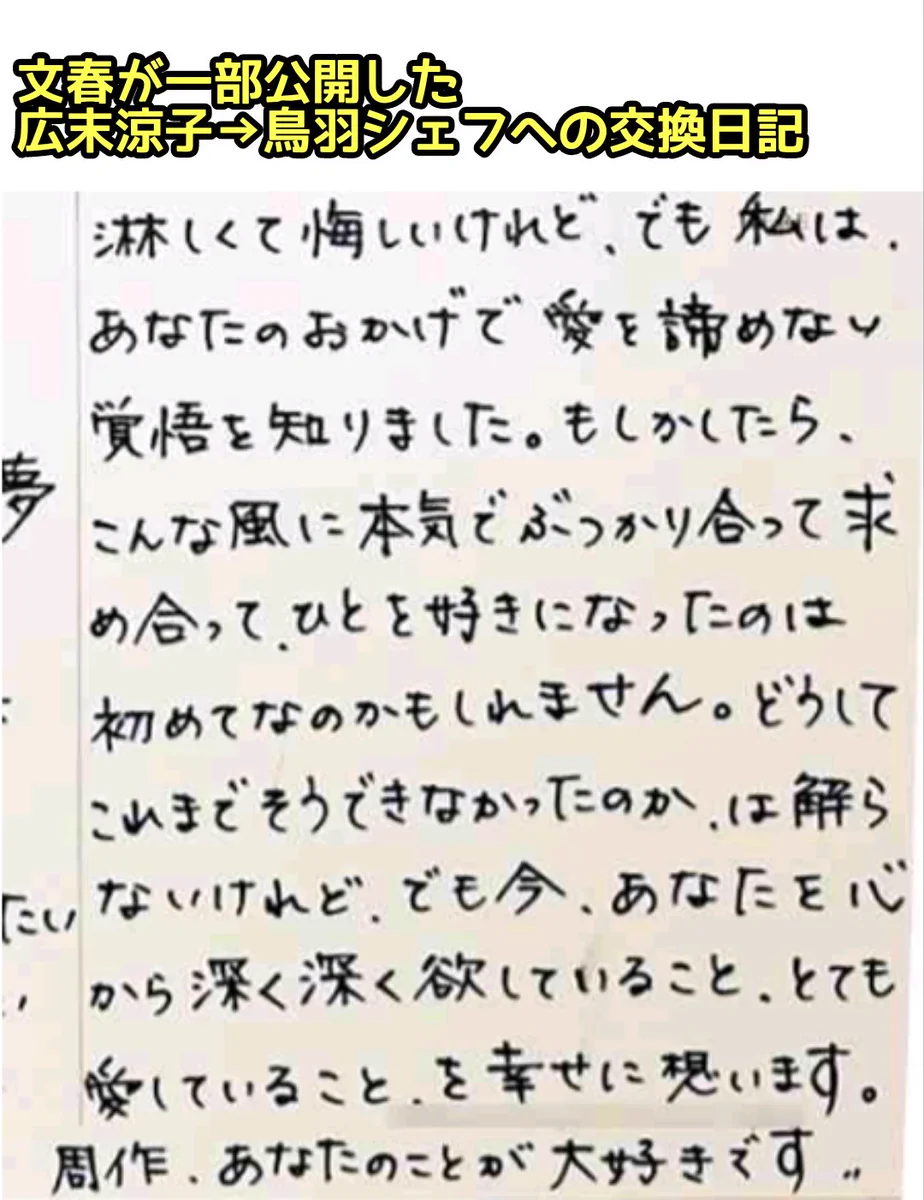 文春が一部公開した
広末涼子→鳥羽シェフへの交換日記
淋しくて悔しいけれど、でも私は、
あなたのおかげで愛を諦めない
覚悟を知りました。もしかしたら、
夢
こんな風に本気でぶつかり合って求
め合って、ひとを好きになったのは
初めてなのかもしれません。どうして
これまでそうできなかったのか、は解ら
ないけれど、でも今、あなたを心
たい
から深く深く欲していること、とても
愛していること、を幸せに想います。
周作、あなたのことが大好きです..